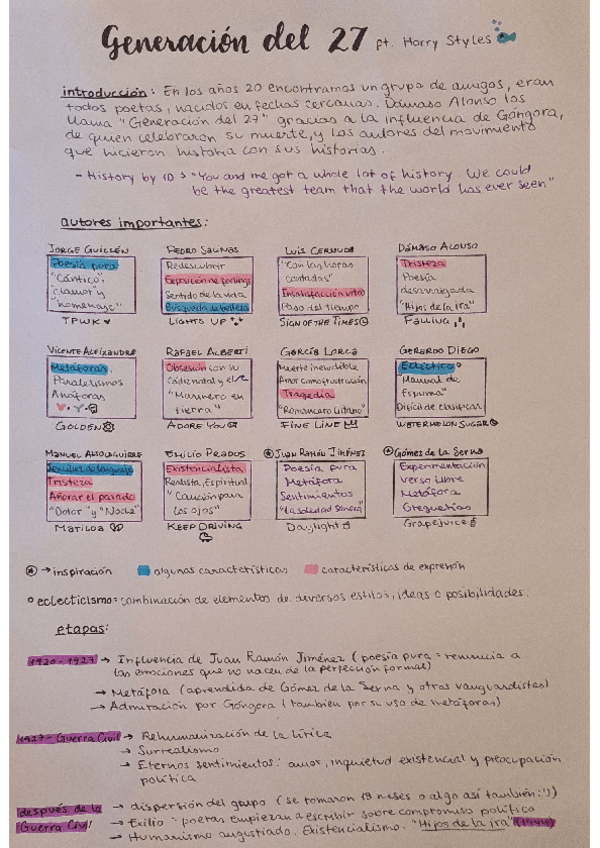 Generación del 27 pt. Harry Styles
introducción: En los años 20 encontramos un grupo de amigos, eran
todos poetas, nacidos en fechas cercanas. Dámaso Alonso los
llama "Generación del 27" gracias a la influencia de Góngora,
de quien celebraron su muerte, y los autores del movimiento
que hicieron historia con sus historias.
- History by 1D → "You and me got a whole lot of history. We could
be the greatest team that the world has ever seen"
autores importantes:
JORGE GUILLÉN
Poesía pura
"Cántico",
clamor y
"homenaje"
TPWK
PEDRO SALINAS
Redescubrir
Exposición de feelings
Sentido de la vida
Búsqueda de belleza
LIGHTS UP
LUIS CERNUDA
"Con las horas
contadas"
Insatisfacción vital
Paso del tiempo
SIGN OF THE TIMES
DÁMASO ALONSO
Tristeza
Poesía
desarraigada
"Hijos de la ira"
FALLING
VICENTE ALEIXANDRE
Metáforas,
Paralelismos
Anáforas
GOLDEN
RAFAEL ALBERTI
Obsesión con su
Cádiz natal y el
"Marinero en
tierra"
ADORE YOU
GARCÍA LORCA
Muerte ineludible
Amor como frustración
Tragedia
"Romancero Gitano"
FINE LINE
GERARDO DIEGO
Ecléctico°
"Manual de
Espuma"
Difícil de clasificar
WATERMELON SUGAR
MANUEL ALTOLAGUIRRE
Sencillez de lenguaje
Tristeza
Añorar el pasado
"Dolor" y "Noche"
MATILDA
EMILIO PRADOS
Existencialista
Realista, Espiritual
"Canción para
los ojos"
KEEP DRIVING
JUAN RAMÓN JIMÉNEZ
Poesía pura
Metáfora
Sentimientos
"La soledad sonora"
Daylight
Gómez de la Serna
Experimentación
verso libre
Metáfora
Greguerías
Grapejuice
→ inspiración algunas características características de expresión
° eclecticismo = combinación de elementos de diversos estilos, ideas o posibilidades.
etapas:
1920-1927 → Influencia de Juan Ramón Jiménez (poesía pura = renuncia a
las emociones que no nacen de la perfección formal)
→ Metáfora (aprendida de Gómez de la Serna y otros vanguardistas)
→ Admiración por Góngora (también por su uso de metáforas)
1927 - Guerra Civil → Rehumanización de la lírica
→ Surrealismo
→ Eternos sentimientos: amor, inquietud existencial y preocupación
política
después de la → dispersión del grupo (se tomaron 18 meses o algo así también :'))
Guerra Civil → Exilio = poetas empiezan a escribir sobre compromiso político
→ Humanismo angustiado. Existencialismo. "Hijos de la ira" (1944)